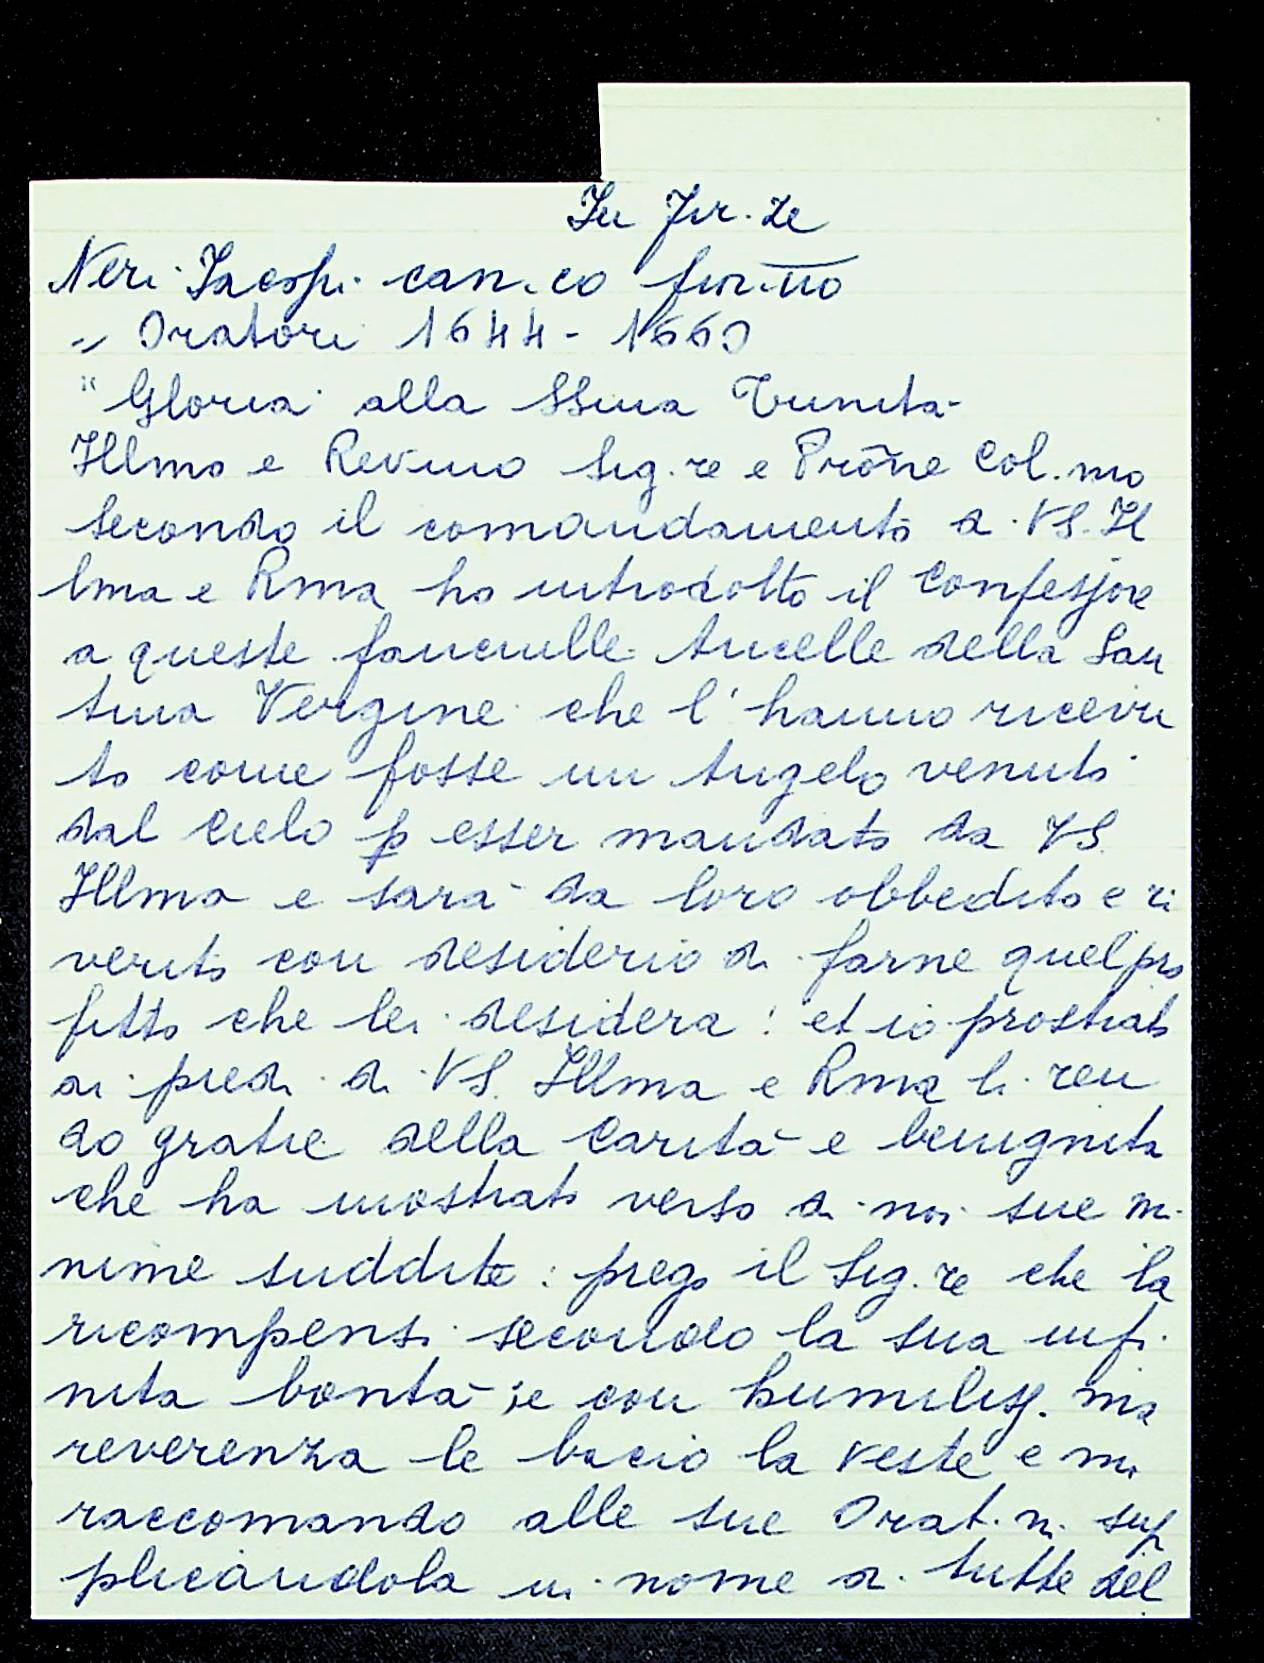 In Fir.ze
Neri Jacopi can.co fior.no
" Oratori 1644 - 1660
"Gloria alla SSma Trinità
Illmo e Revmo Sig.re e Prōne Col.mo
secondo il comandamento di VS. Il
lma e Rma ho introdotto il Confessore
a queste fanciulle Ancelle della San
tma Vergine che l'hanno ricevu
to come fosse un Angelo venuto
dal Cielo p esser mandato da VS.
Illma e sarà da loro obbedito e ri
verito con desiderio di farne quel pro
fitto che lei desidera: et io prostrato
ai piedi di VS. Illma e Rma li ren
do gratie della Carità e benignità
che ha mostrato verso di noi sue mi
nime suddite: prego il Sig.re che la
ricompensi secondo la sua infi
nita bontà; e con humiliss.ma
reverenza le bacio la veste e mi
raccomando alle sue Orat.ni sup
plicandola in nome di tutte del